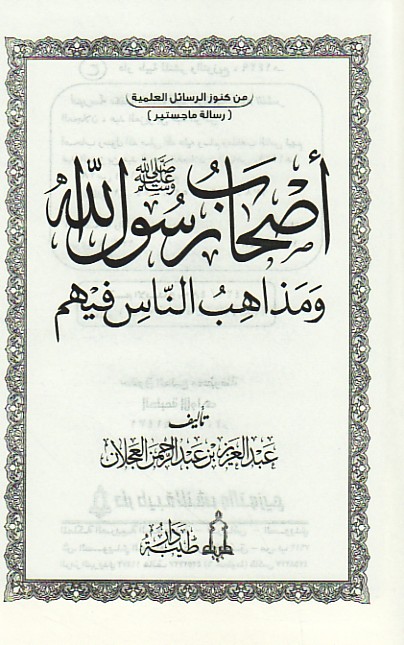 من كنوز الرسائل العلمية
( رسالة ماجستير )
أَصْحَابُ رَسُولِ اللهِ ﷺ
وَمَذَاهِبُ النَّاسِ فِيهِم
تأليف
عبد العزيز بن عبد الرحمن العجلان
دار طيبة